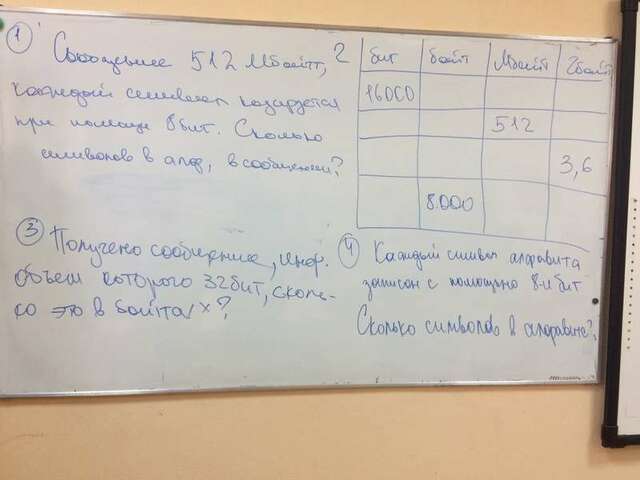 1 Сообщение 512 Мбайт,
каждый символ кодируется
при помощи 8 бит. Сколько
символов в алф, в сообщении?
2
бит байт Мбайт Гбайт
16000
512
3,6
8.000
3 Получено сообщение, инф.
объем которого 32 бит, сколь-
ко это в байтах?
4 Каждый символ алфавита
записан с помощью 8-и бит
Сколько символов в алфавите?